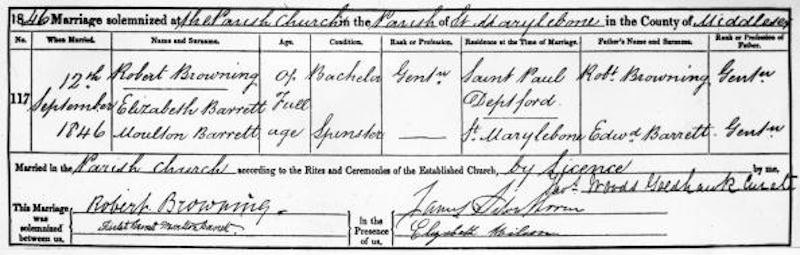 1846 Marriage solemnized at the Parish Church in the Parish of St. Marylebone in the County of Middlesex
No. When Married. Name and Surname. Age. Condition. Rank or Profession. Residence at the Time of Marriage. Father's Name and Surname. Rank or Profession of Father.
12th Robert Browning Of Bachelor Gentn Saint Paul Robt. Browning Gentn
117 September Elizabeth Barrett Full Deptford
1846 Moulton Barrett age Spinster St. Marylebone Edwd Barrett Gentn
Married in the Parish Church according to the Rites and Ceremonies of the Established Church, by Licence by me,
Woods Goodhawk Curate
This Marriage was solemnized between us, Robert Browning. In the Presence of us, James
Barrett Moulton Barrett. Elizabeth Wilson